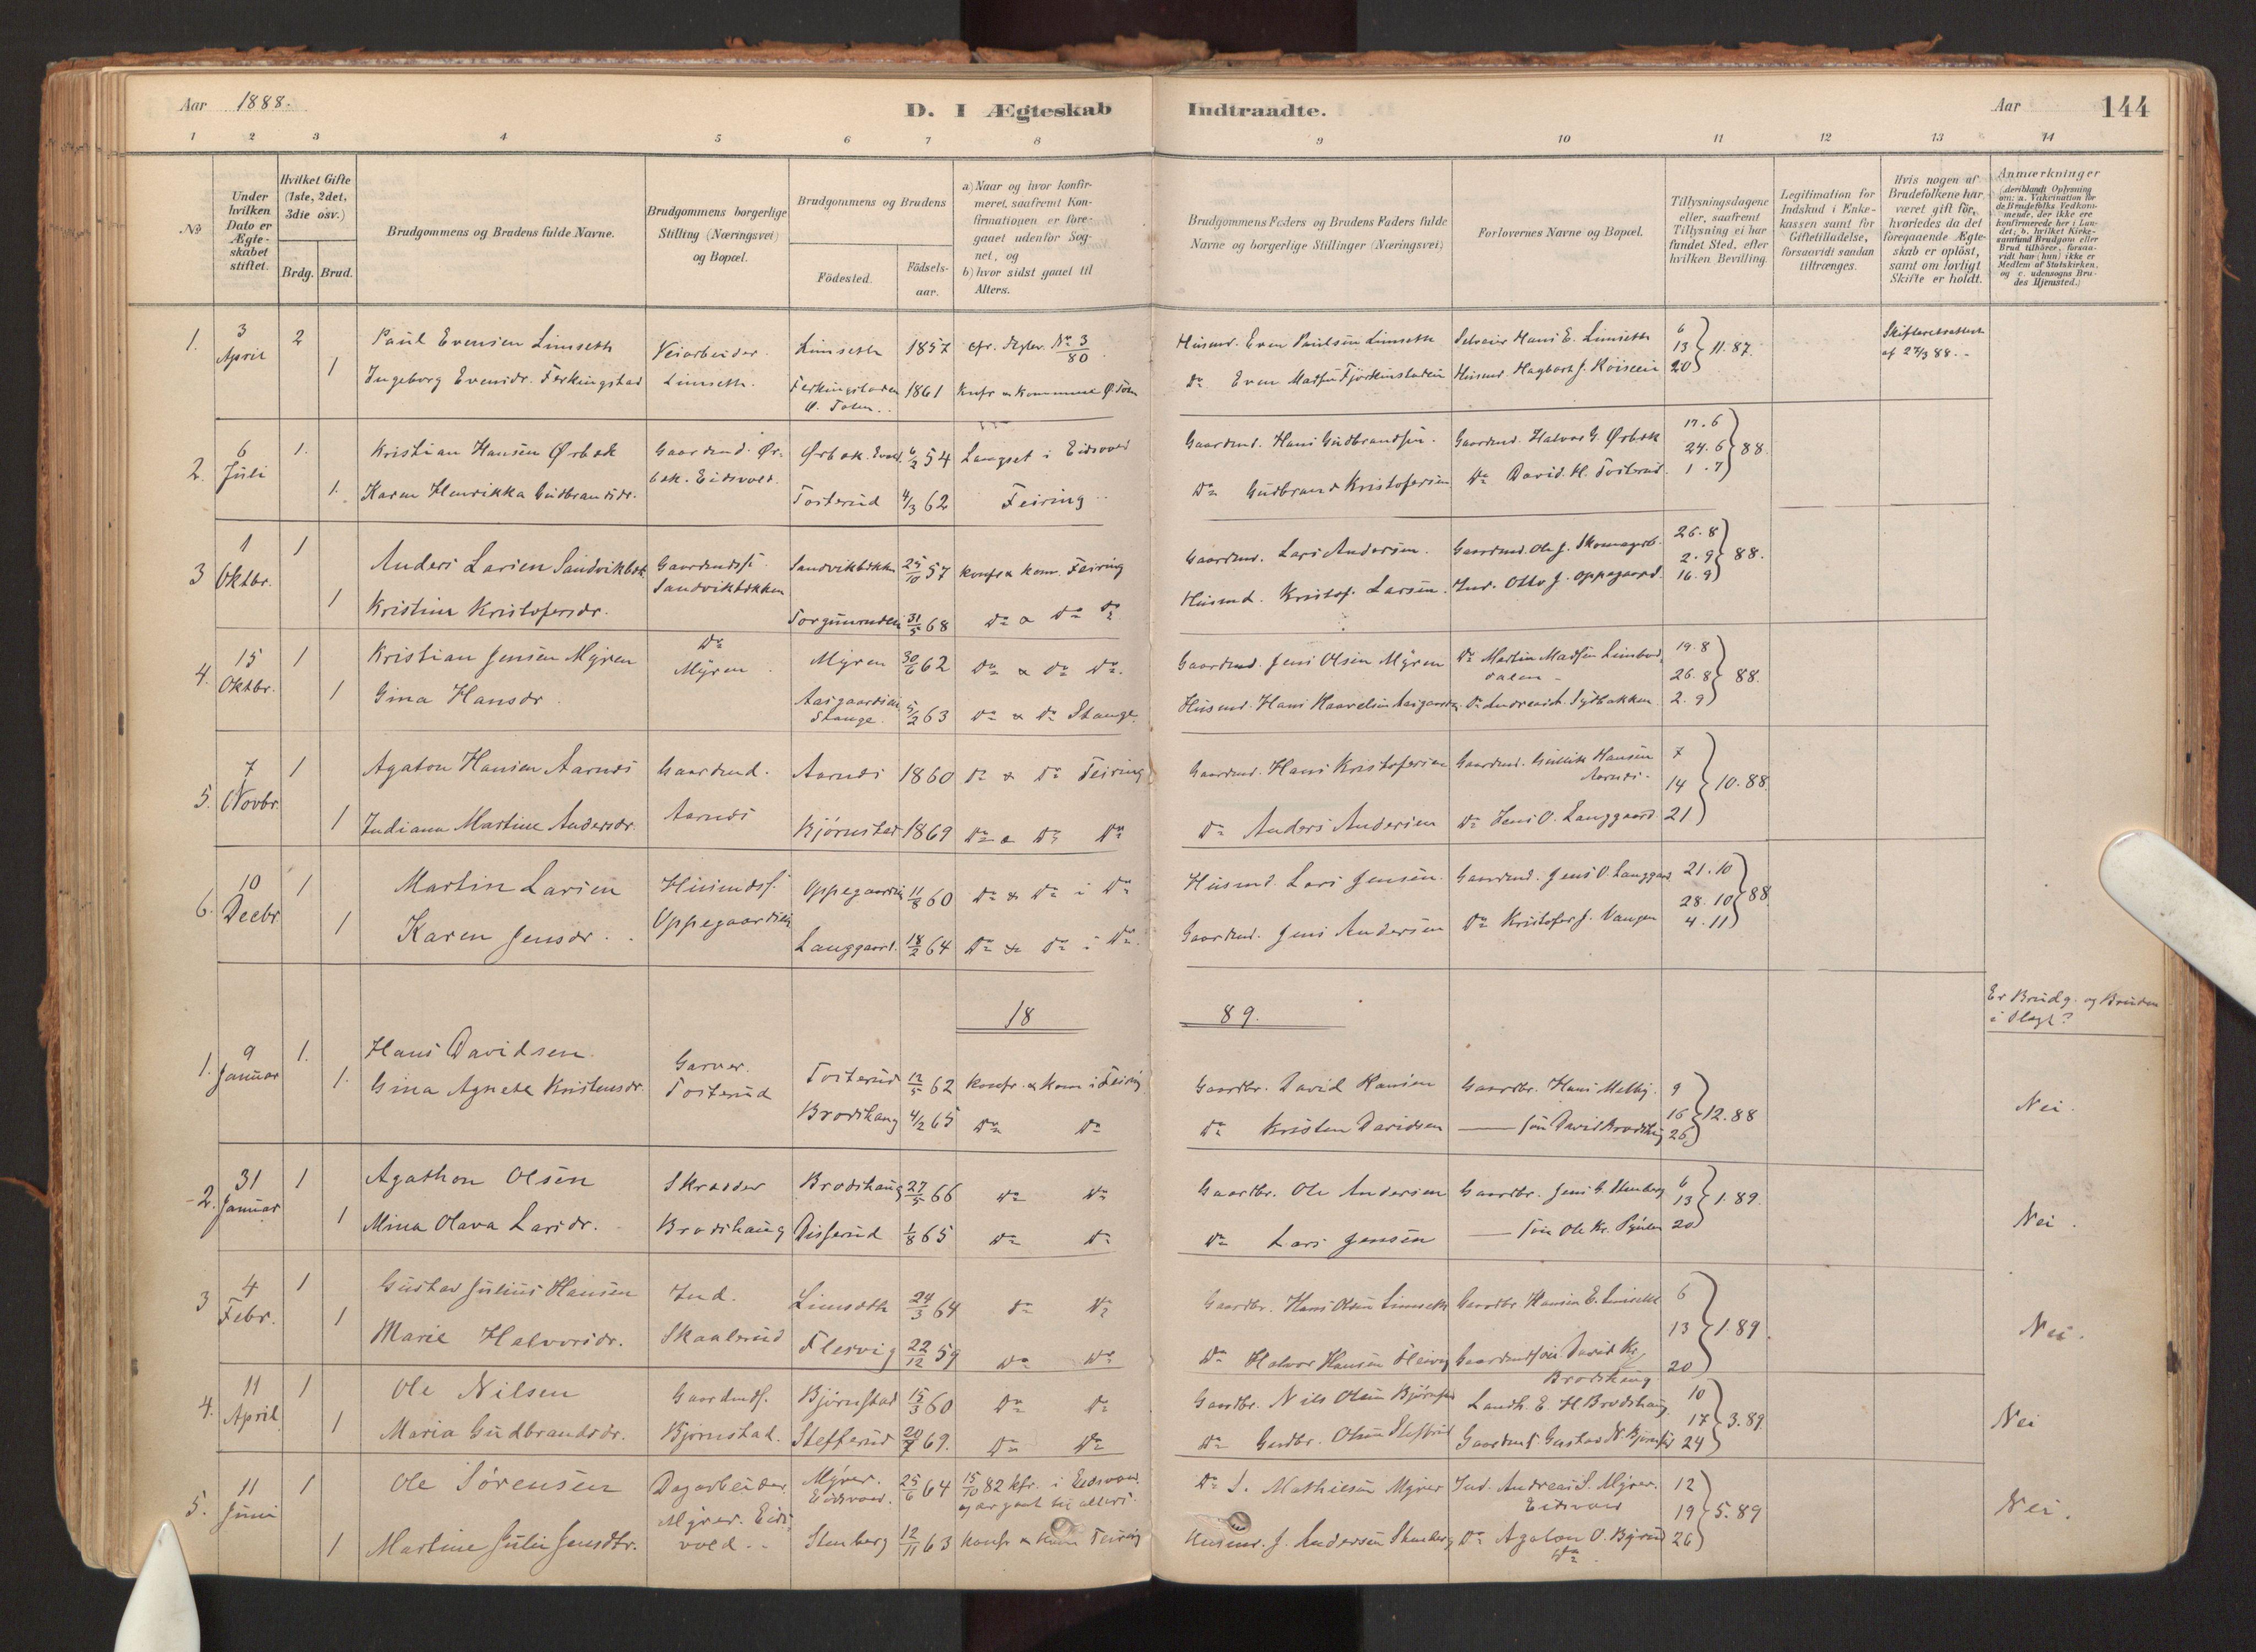 Aar 1888.
D. I Ægteskab Indtraadte.
Aar 144
1 2 3 4 5 6 7 8 9 10 11 12 13 14
No
Under hvilken Dato er Ægteskabet stiftet.
Hvilket Gifte (1ste, 2det, 3die osv.)
Brdg. Brud.
Brudgommens og Brudens fulde Navne.
Brudgommens borgerlige Stilling (Næringsvei) og Bopæl.
Brudgommens og Brudens
Födested.
Födselsaar.
a) Naar og hvor konfirmeret, saafremt Konfirmationen er foregaaet udenfor Sognet, og
b) hvor sidst gaaet til Alters.
Brudgommens Faders og Brudens Faders fulde Navne og borgerlige Stillinger (Næringsvei)
Forlovernes Navne og Bopæl.
Tillysningsdagene eller, saafremt Tillysning ei har fundet Sted, efter hvilken Bevilling.
Legitimation for Indskud i Enkekassen samt for Giftetilladelse, forsaavidt saadan tiltrænges.
Hvis nogen af Brudefolkene har været gift för, hvorledes da det foregaaende Ægteskab er oplöst, samt om lovligt Skifte er holdt.
Anmærkninger (deriblandt Oplysning om: a. Vakcination for de Brudefolks Vedkommende, der ikke ere konfirmerede her i Landet; b. hvilket Kirkesamfund Brudgom eller Brud tilhörer, forsaavidt han (hun) ikke er Medlem af Statskirken, og c. udensogns Brudes Hjemsted.)
1. 3 April 2 Paul Evensen Limseth Veiarbeider Limseth 1857 cfr. No 3/80 Husmd. Even Paulsen Limseth Selveier Hans E. Limseth 6 13 20 11.87. Skifteretsattest af 27/3 88.
1 Ingeborg Evensdr. Ferkingstad Limseth. Ferkingstaden Ø. Toten 1861 Konfr & Kommune Ø. Toten Do Even Madsen Husmd. Hagbart J.
2. 6 Juli 1. Kristian Hansen Ørbæk Gaardmd. Ørbæk. Eidsvold. Ørbæk. Eidsvold 6/2 54 Langset i Eidsvold Gaardmd. Hans Gudbrandsen. Gaardmd. Halvor G. Ørbæk 17.6 24.6 1.7 88.
1. Karen Henrikka Gudbrandsdr. Tosterud 4/3 62 Feiring Do Gudbrand Kristofersen Do David. H. Tosterud
3 1 Oktbr. 1 Anders Larsen Sandvikbæk Gaardmdss. Sandvikbækken Sandvikbækken 25/10 57 Konfr & Kom. Feiring Gaardmd. Lars Andersen. Gaardmd. Ole J. 26.8 2.9 16.9 88.
1 Kristine Kristofersdr. 31/5 68 Do & Do Do Husmd. Kristof. Larsen. Ind. Otto J. Oppegaard.
4. 15 Oktbr. 1 Kristian Jensen Myren Do Myren Myren 30/6 62 Do & Do Do. Gaardmd. Jens Olsen Myren Do Martin Madsen 19.8 26.8 2.9 88.
1 Gina Hansdr Stange. 5/2 63 Do & Do Stange. Husmd. Hans
5. 7 Novbr. 1 Agaton Hansen Aarnæs Gaardmd. Aarnæs Aarnæs 1860 Do & Do Feiring Gaardmd. Hans Kristofersen Gaardmd. Gullik Hansen Aarnæs. 7 14 21 10.88.
1 Indiana Martine Andersdr. Bjørnstad 1869 Do & Do Do Do Anders Andersen Do Jens O. Langgaard
6. 10 Decbr. 1 Martin Larsen Husmdss. Oppegaardseie Oppegaardseie 11/8 60 Do & Do i Do Husmd. Lars Jensen. Gaardmd. Jens O. Langgaard 21.10 28.10 4.11 88
1 Karen Jensdr. Langgaard. 18/2 64 Do & Do i Do. Gaardmd. Jens Andersen Do Kristofer J. Vangen
18 89.
Er Brudg. og Bruden i Slægt?
1. 9 Januar 1. Hans Davidsen Garver. Tosterud Tosterud 12/5 62 Konfr. & Kom i Feiring Gaardbr. David Hansen Gaardbr. Hans Melby. 9 16 26 12.88 Nei.
1. Gina Agnete Kristensdr. Brodshaug 4/2 65 Do Do Do Kristen Davidsen
2. 31 Januar 1 Agathon Olsen Skrædder Brodshaug Brodshaug 27/5 66 Do Do Gaardbr. Ole Andersen Gaardbr. Jens G. Stenberg 6 13 20 1.89. Nei.
1 Mina Olava Larsdr. Disserud 1/8 65 Do Do Do Lars Jensen
3 4 Febr. 1 Gustav Julius Hansen Ind. Skaalerud Limseth 24/3 64 Do Do Gaardbr. Hans Olsen Limseth Gaardbr. Hansen E. Limseth 6 13 20 1.89. Nei.
1 Marie Halvorsdr. Flesvig 22/12 59 Do Do Do Halvor Hansen Flesvig David Kr. Brodshaug
4. 11 April 1 Ole Nilsen Gaardmds. Bjørnstad. Bjørnstad 15/3 60 Do Do Gaardbr. Nils Olsen Bjørnstad Landh. E H Brodshaug 10 17 24 3.89. Nei
1 Maria Gudbrandsdr. Stefferud 20/7 69. Do Do Do Gudbr. Olsen Stefferud Gustav N. Bjørnstad
5. 11 Juni 1 Ole Sørensen Dagarbeider Myrer. Eidsvold. Myrer. Eidsvold. 25/6 64 15/10 82 kfr. i Eidsvold. Do S. Mathiesen Myrer Ind. Andreas S. Myrer. Eidsvold 12 19 26 5.89 Nei.
1 Martine Julie Jensdtr. Stenberg 12/11 63 Konfr & Kom Feiring Husmd. J. Andersen Stenberg Do Agaton O. Do